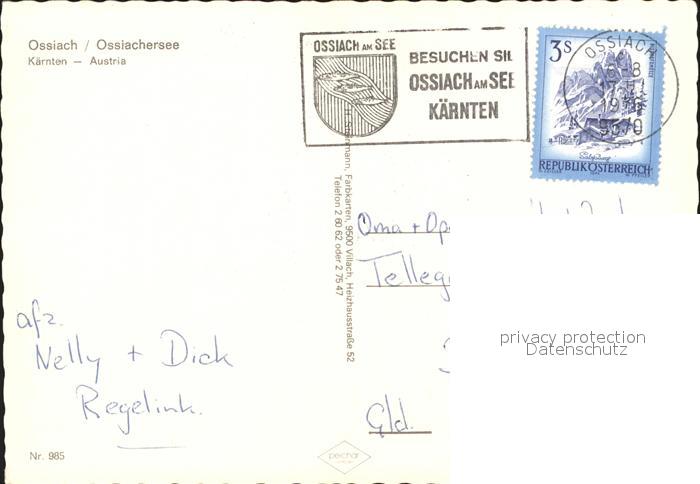 Ossiach / Ossiachersee
Kärnten – Austria
OSSIACH AM SEE
BESUCHEN SIE
OSSIACH AM SEE
KÄRNTEN
3S
OSSIACH
9570
REPUBLIK ÖSTERREICH
Farbkarten, 9500 Villach, Heizhausstraße 52
Telefon 2 60 62 oder 2 75 47
Oma + Op
Telleg
Gld.
afz.
Nelly + Dick
Regelink.
privacy protection
Datenschutz
Nr. 985
pechar